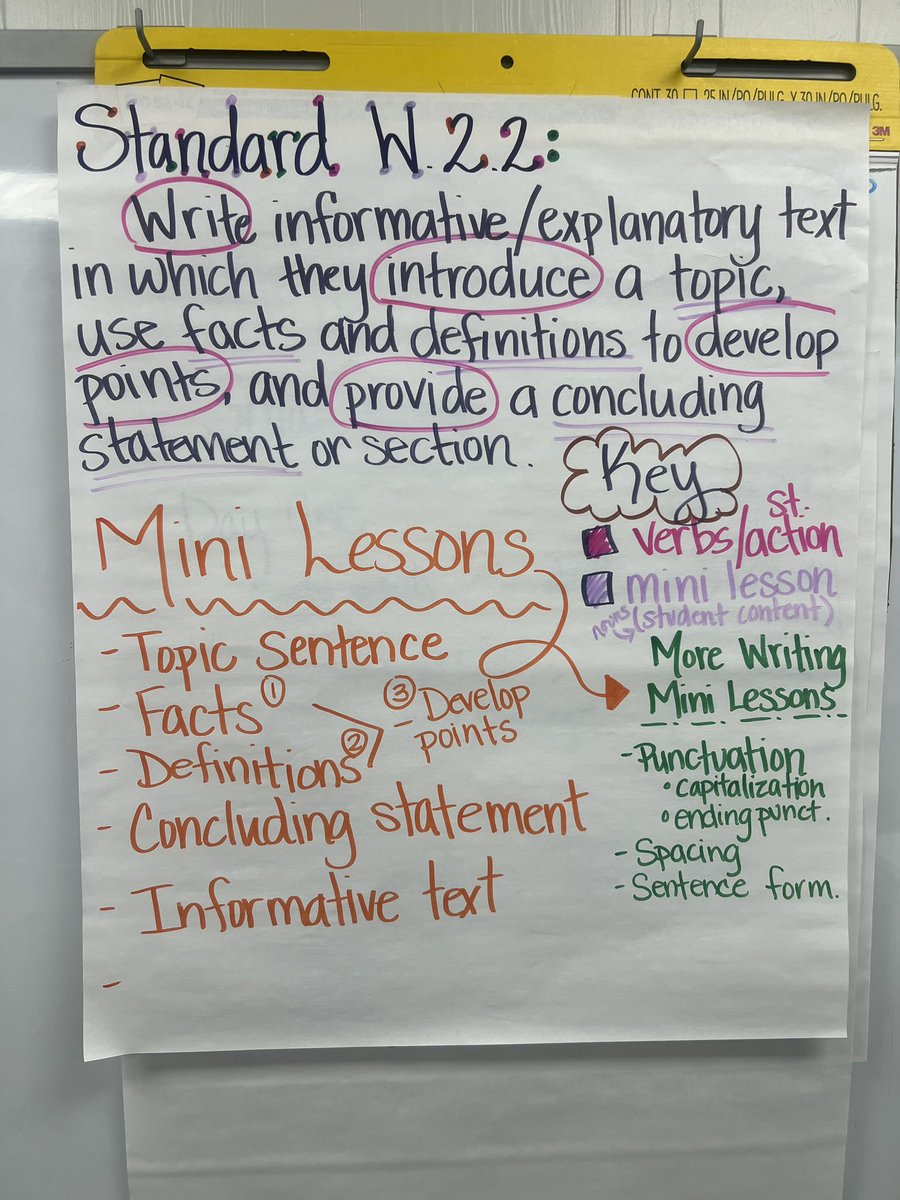 CONT. 30 25 IN/PO/PULG. X 30 IN/PO/PULG.
3M
Standard W.2.2:
Write informative/explanatory text
in which they introduce a topic,
use facts and definitions to develop
points, and provide a concluding
statement or section.
Key
st.
verbs/action
mini lesson
nouns (student content)
Mini Lessons
- Topic Sentence
- Facts ①
- Definitions ②
③ - Develop
points
- Concluding statement
- Informative text
-
More Writing
Mini Lessons
- Punctuation
• capitalization
• ending punct.
- Spacing
- Sentence form.